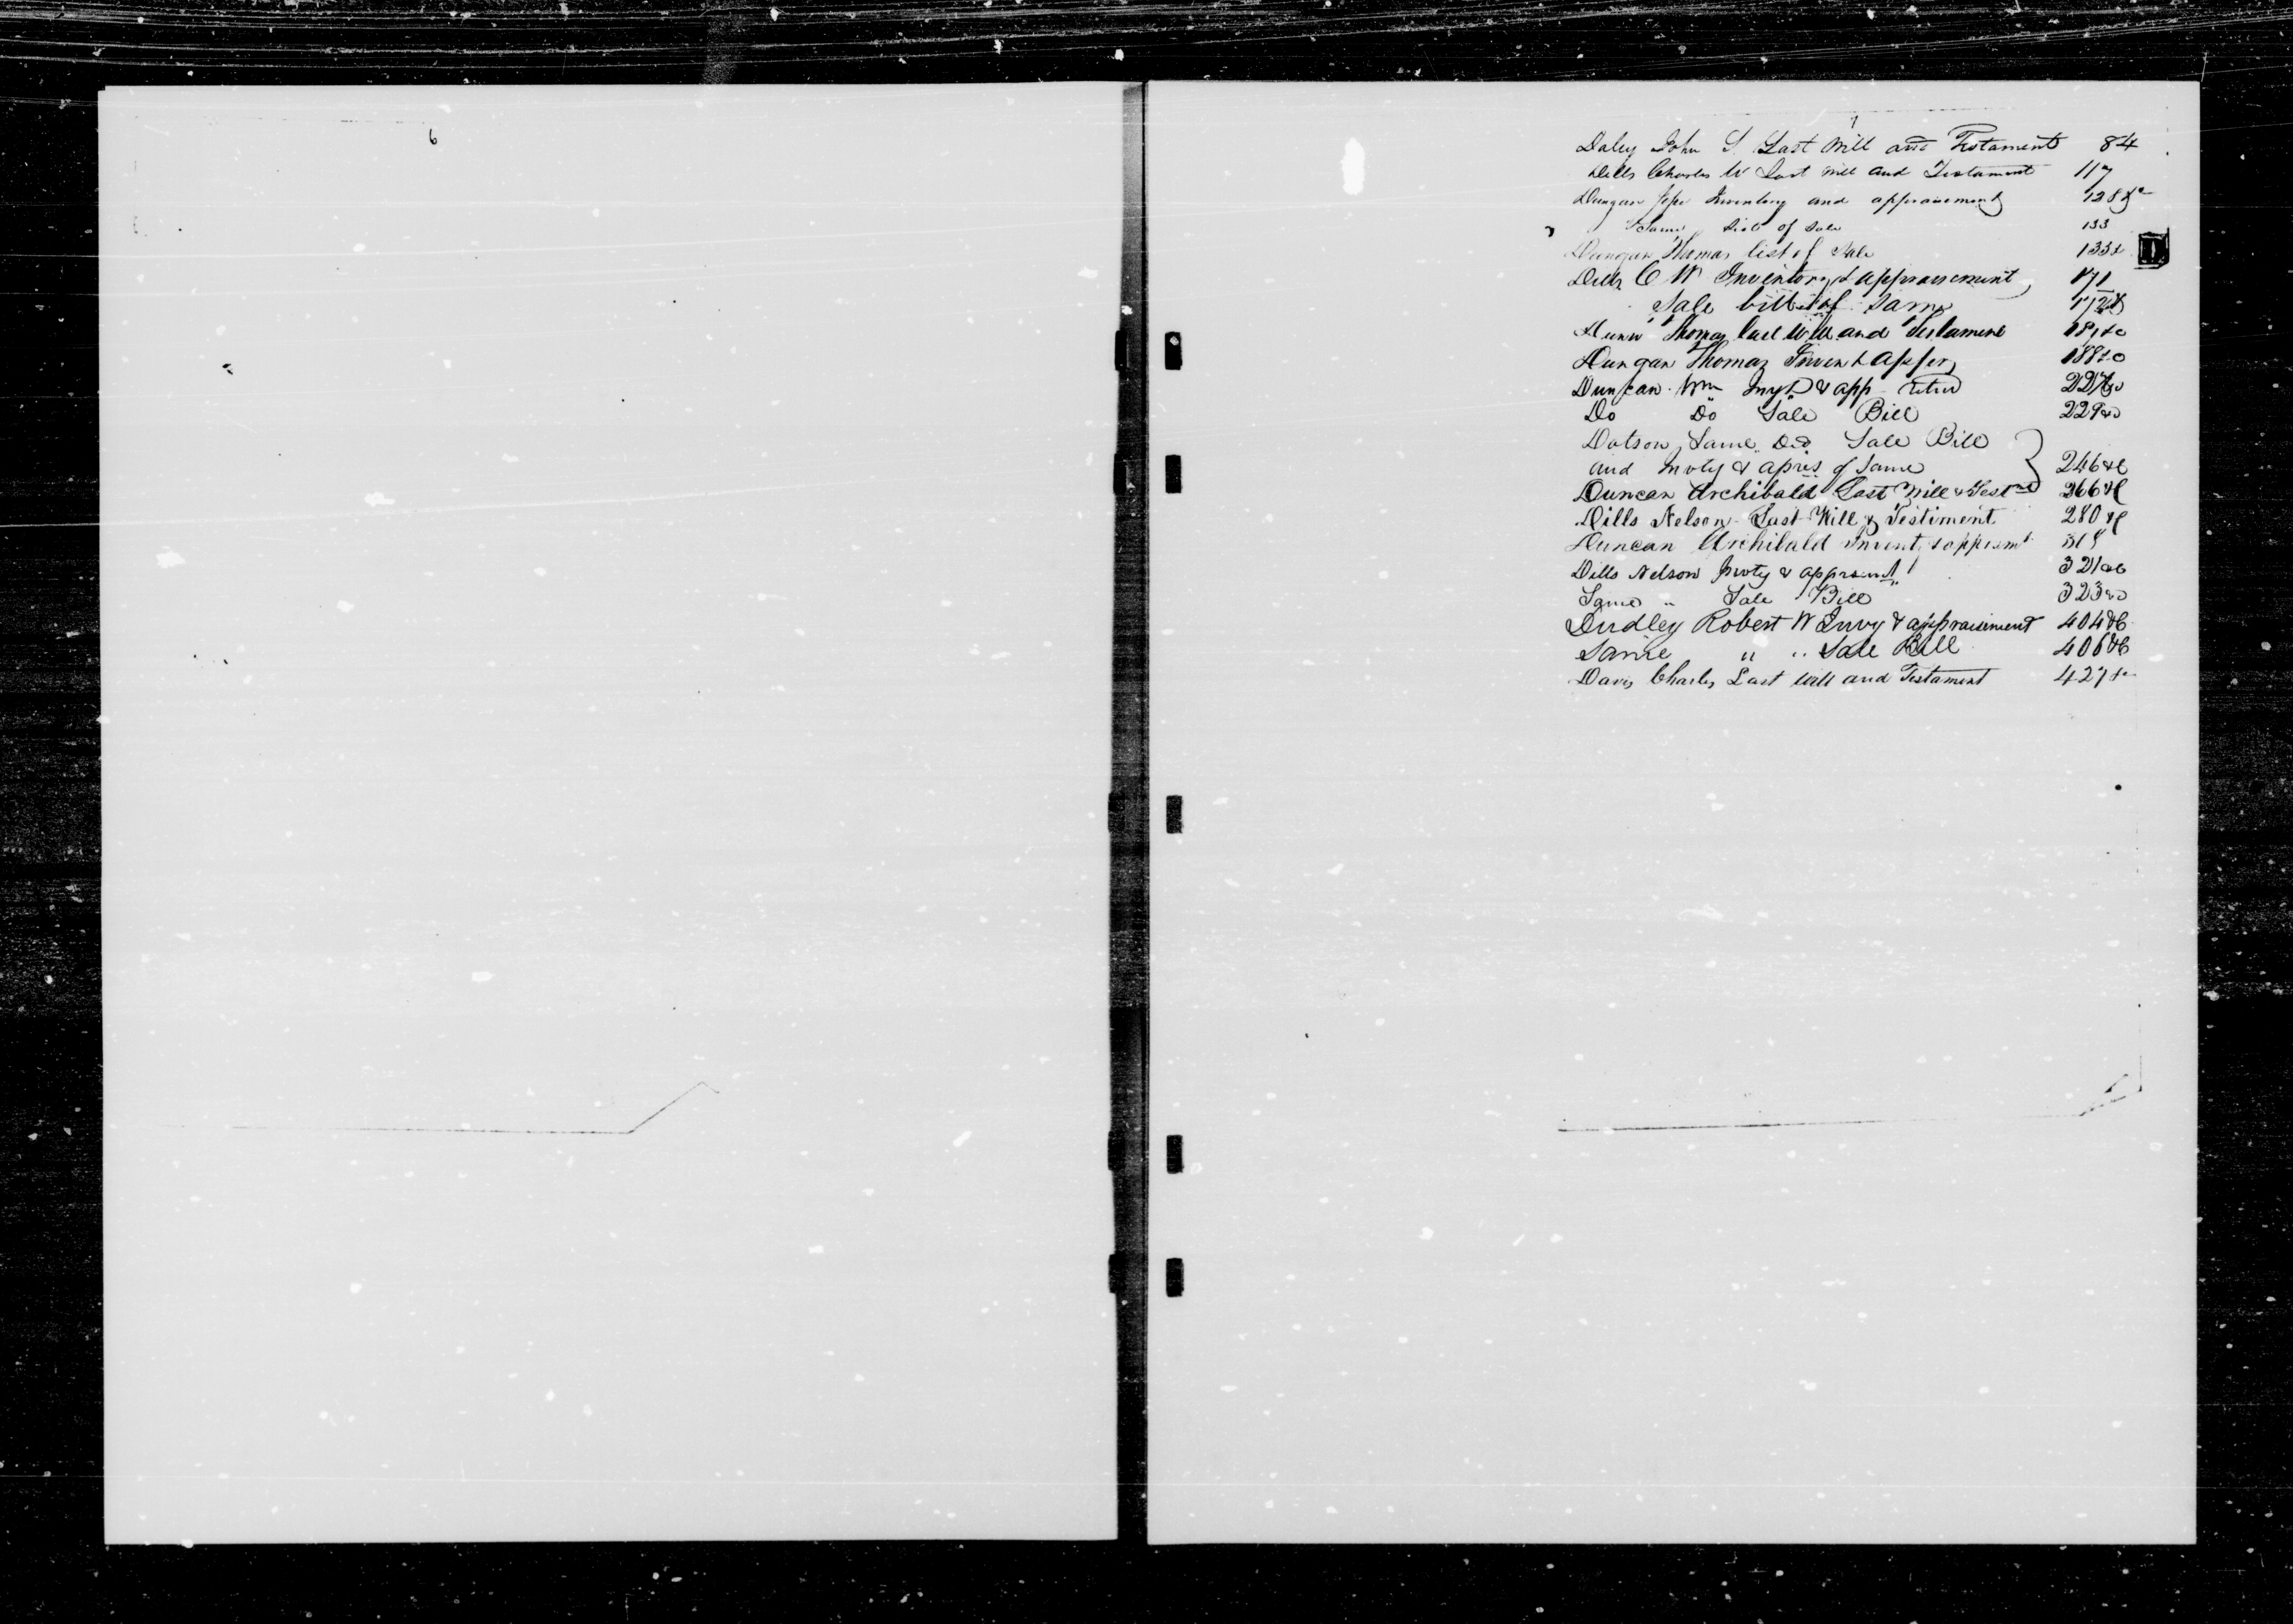 6
7
Daley John S. Last Will and Testament 84
Dills Charles W Last Will and Testament 117
Dungan Jesse Inventory and appraisement 128 &c
Same List of Sale 133
D
Dungan Thomas list of Sale 133&
Dills C W Inventory & appraisement 171
Sale bill of Same 172&
Thomas Last Will and Testament
Dungan Thomas Inven & Apprs 188&c
Duncan Wm Invt & app 227&c
Do Do Sale Bill 229&c
Dotson Same Sale Bill
and Invty & apris of Same 246&c
Duncan Archibald Last Will & Testmt 266&c
Dills Nelson Last Will & Testiment 280&c
Duncan Archibald Invent & apprismt 319
Dills Nelson Invty & apprsmt 321&c
Same " Sale Bill 323&c
Dudley Robert W Invy & appraisement 404&c
Same " " Sale Bill 406&c
Davis Charles Last Will and Testament 427&c